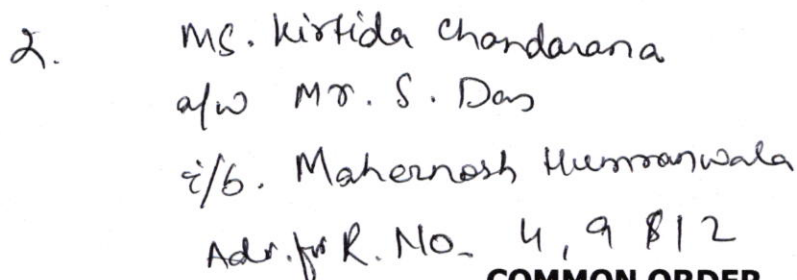 2. Ms. Kirtida Chandarana
a/w Mr. S. Das
i/b. Mahernosh Humranwala
Adv. for R. No. 4, 9 & 12
COMMON ORDER